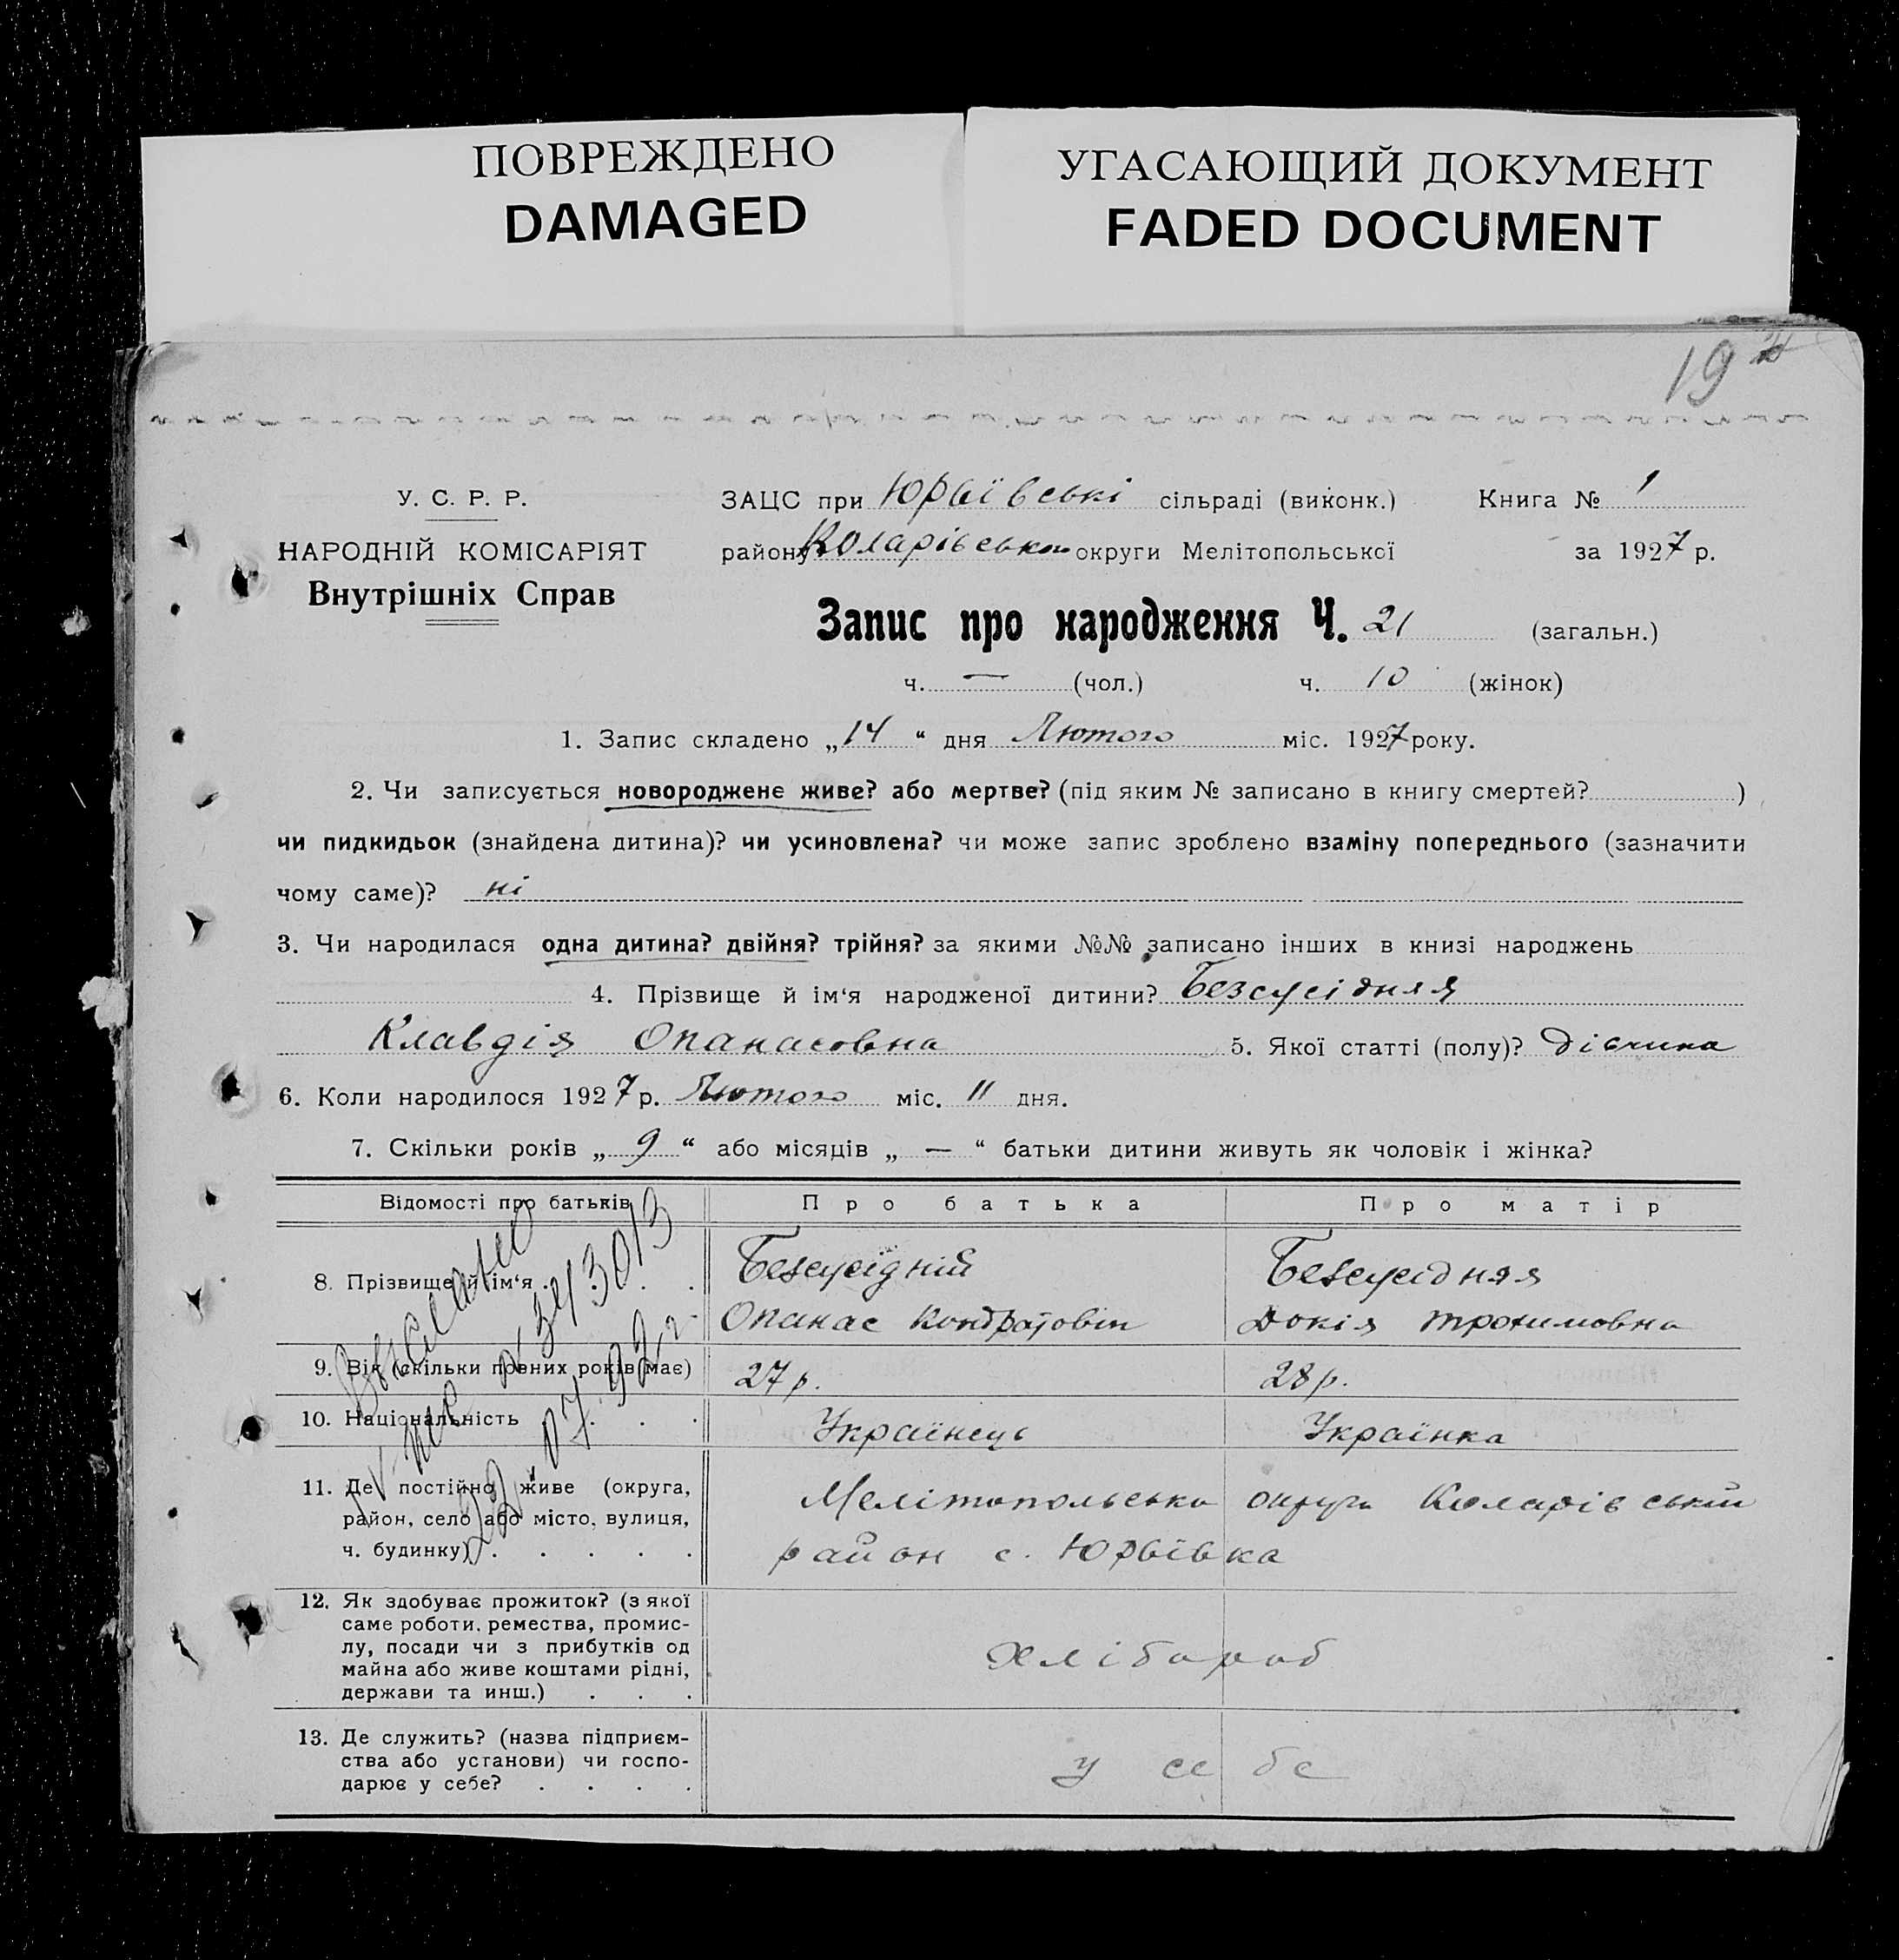 ПОВРЕЖДЕНО
DAMAGED
УГАСАЮЩИЙ ДОКУМЕНТ
FADED DOCUMENT
19
У. С. Р. Р.
НАРОДНІЙ КОМІСАРІЯТ
Внутрішніх Справ
ЗАЦС при Юрьївські сільраді (виконк.) Книга № 1
району Коларівської округи Мелітопольської за 1927 р.
Запис про народження Ч. 21 (загальн.)
ч. — (чол.) ч. 10 (жінок)
1. Запис складено „14“ дня Лютого міс. 1927 року.
2. Чи записується новороджене живе? або мертве? (під яким № записано в книгу смертей? )
чи пидкидьок (знайдена дитина)? чи усиновлена? чи може запис зроблено взаміну попереднього (зазначити
чому саме)? ні
3. Чи народилася одна дитина? двійня? трійня? за якими №№ записано інших в книзі народжень
4. Прізвище й ім‘я народженої дитини? Безсусідняя
Клавдія Опанасовна 5. Якої статті (полу)? дівчина
6. Коли народилося 1927 р. Лютого міс. 11 дня.
7. Скільки років „9“ або місяців „—“ батьки дитини живуть як чоловік і жінка?
Відомості про батьків Про батька Про матір
8. Прізвище й ім‘я . . . Безсусідній Безсусідняя
Опанас Кондратовіч Докія Трохимовна
9. Вік (скільки повних років має) 27 р. 28 р.
10. Національність . . . Українець Українка
11. Де постійно живе (округа,
район, село або місто, вулиця,
ч. будинку) . . . . .
Мелітопольська округи Коларівській
район с. Юрьївка
12. Як здобуває прожиток? (з якої
саме роботи, ремества, промис-
лу, посади чи з прибутків од
майна або живе коштами рідні,
держави та инш.) . . .
хлібороб
13. Де служить? (назва підприєм-
ства або установи) чи госпо-
дарює у себе? . . . .
у себе
22.07.92 г.